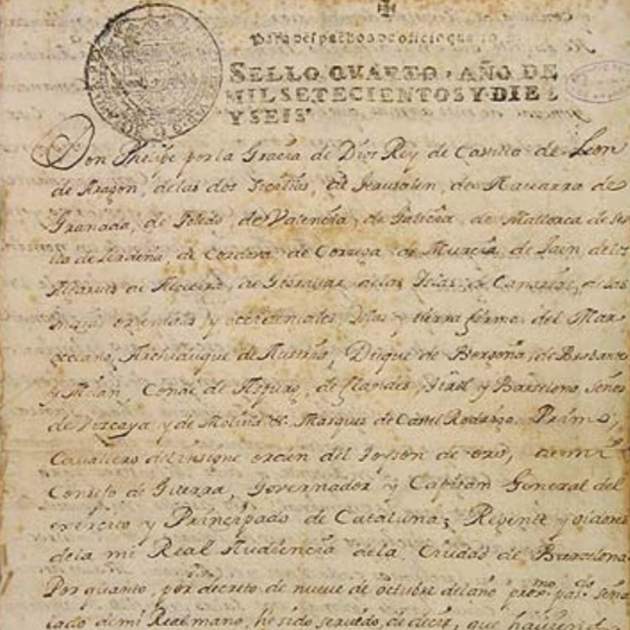 Para despachos de oficio
SELLO QVARTO, AÑO DE
MIL SETECIENTOS Y DIEZ
Y SEIS
Don Phelipe por la Gracia de Dios Rey de Castilla de Leon
de Aragon, delas dos Sicilias, de Jerusalen, de Navarra de
Granada, de Toledo, de Valencia, de Galicia, de Mallorca de Sevi
lla de Cerdeña, de Cordova de Corcega de Murcia, de Jaen, de los
Algarves de Algecira, de Gibraltar delas Islas de Canarias, de las
Indias orientales y occidentales Islas y tierra firme del Mar
occeano, Archiduque de Austria, Duque de Borgoña, de Brabante
y Milan, Conde de Aspurg, de flandes, Tirol y Barcelona, Señor
de Vizcaya y de Molina &. Marques de Castel Rodrigo. Primo,
Cavallero del insigne orden del Toyson de oro, de mi
Consejo de Guerra, Governador y Capitan General del
exercito y Principado de Cataluña; Regente y oidores
dela mi Real Audiencia dela Ciudad de Barcelona
Por quanto, por decreto de nueve de octubre del año proxmo. pasdo. seña
lado de mi Real mano, he sido servido, de decir, que haviendo